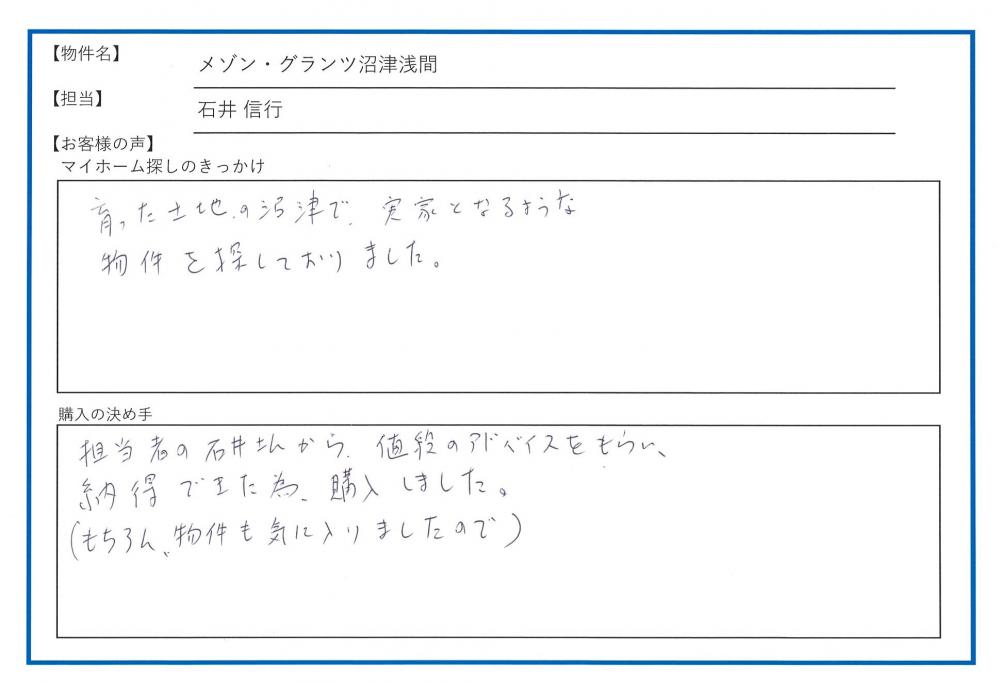 【物件名】
メゾン・グランツ沼津浅間
【担当】
石井 信行
【お客様の声】
マイホーム探しのきっかけ
育った土地の沼津で、実家となるような
物件を探しておりました。
購入の決め手
担当者の石井さんから、値段のアドバイスをもらい、
納得できた為、購入しました。
(もちろん、物件も気に入りましたので)